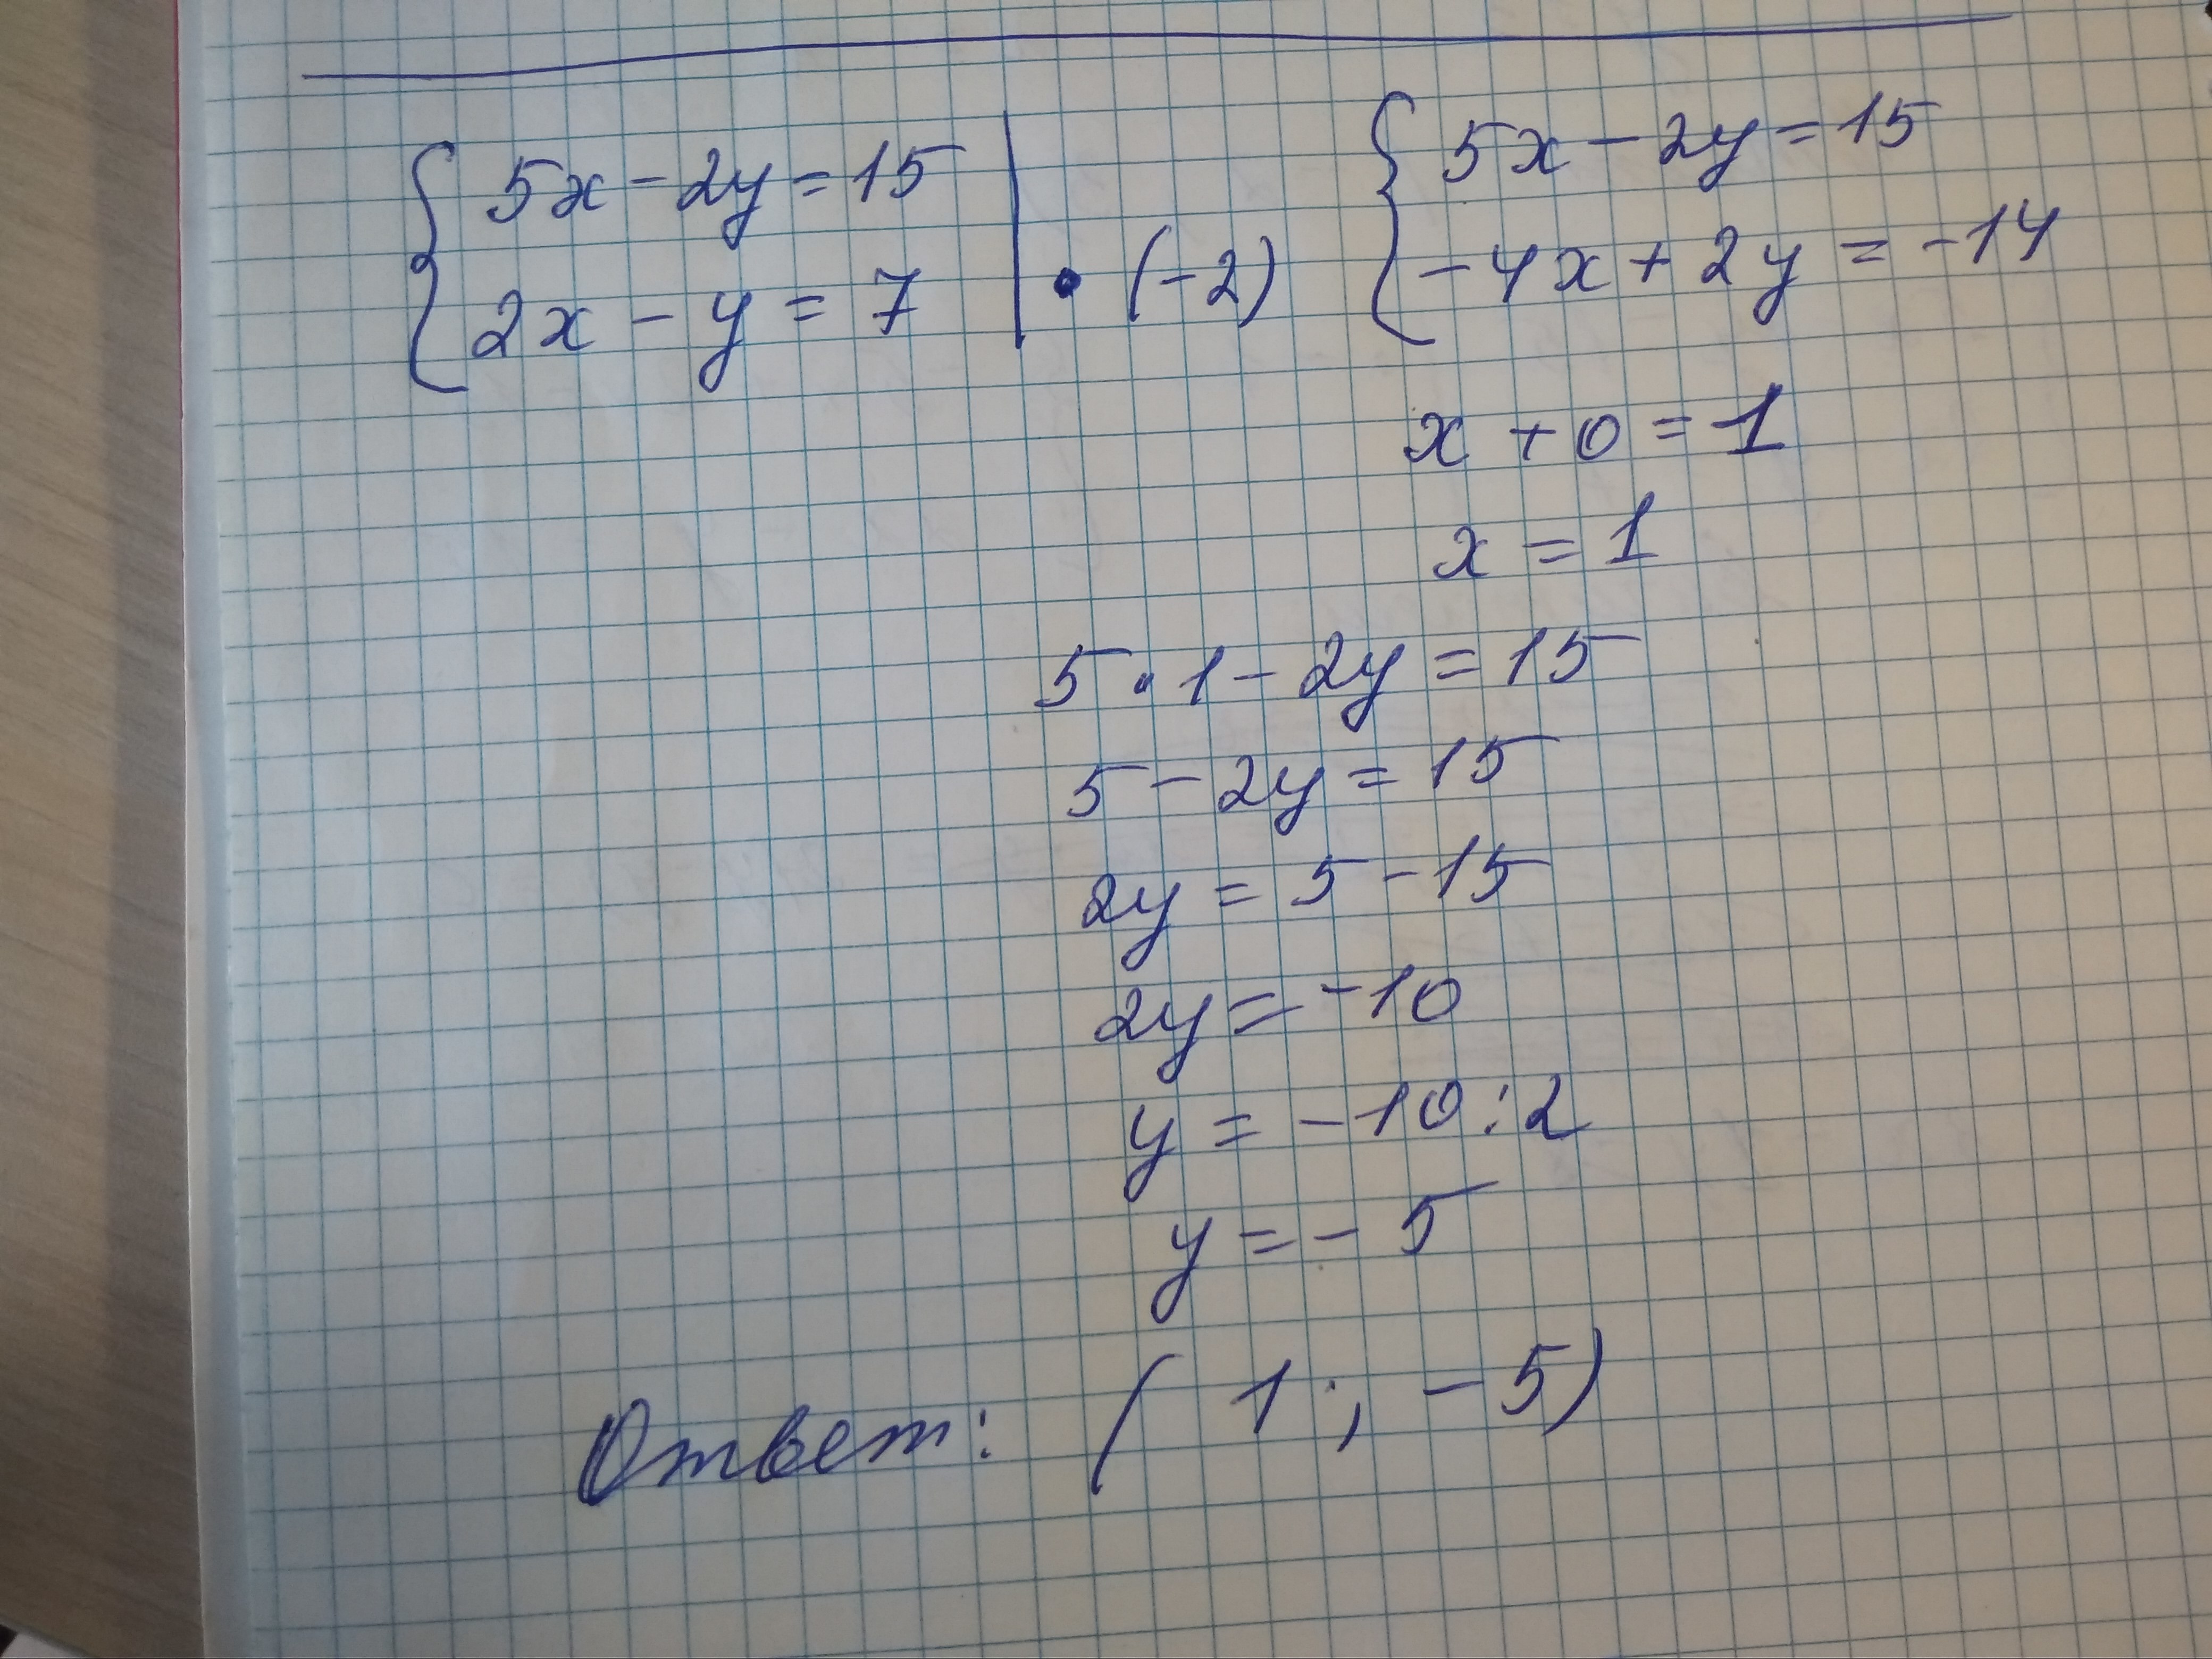 5x - 2y = 15
2x - y = 7 | • (-2)
5x - 2y = 15
-4x + 2y = -14
x + 0 = 1
x = 1
5 • 1 - 2y = 15
5 - 2y = 15
2y = 5 - 15
2y = -10
y = -10 : 2
y = -5
Ответ: (1; -5)